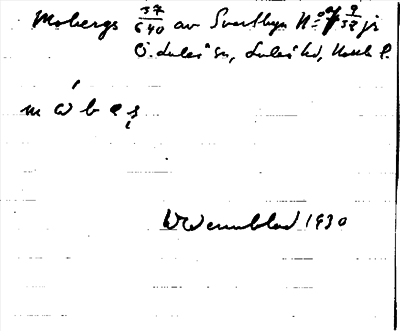 Mobergs 37/640 av Svartbyn No 7 9/32 js
Ö. Luleå sn, Luleå hd, Norrb. l.
m ώ b e ş
W Wennblad 1930